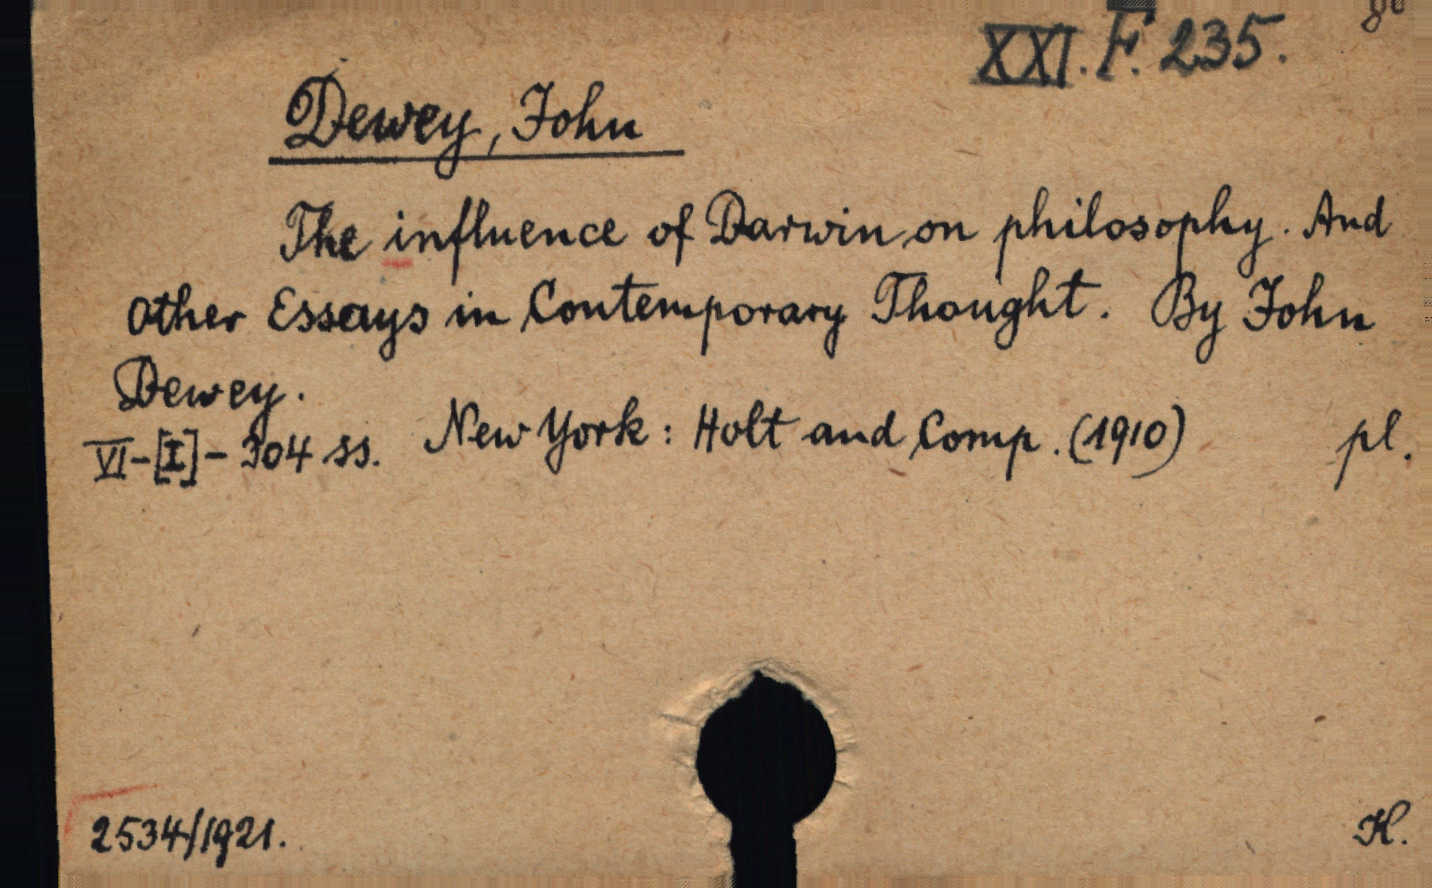 8°
XXI. F. 235.
Dewey, John
The influence of Darwin on philosophy. And
other Essays in Contemporary Thought. By John
Dewey.
VI-[I]-304 ss. New York: Holt and Comp. (1910) pl.
2534/1921. K.